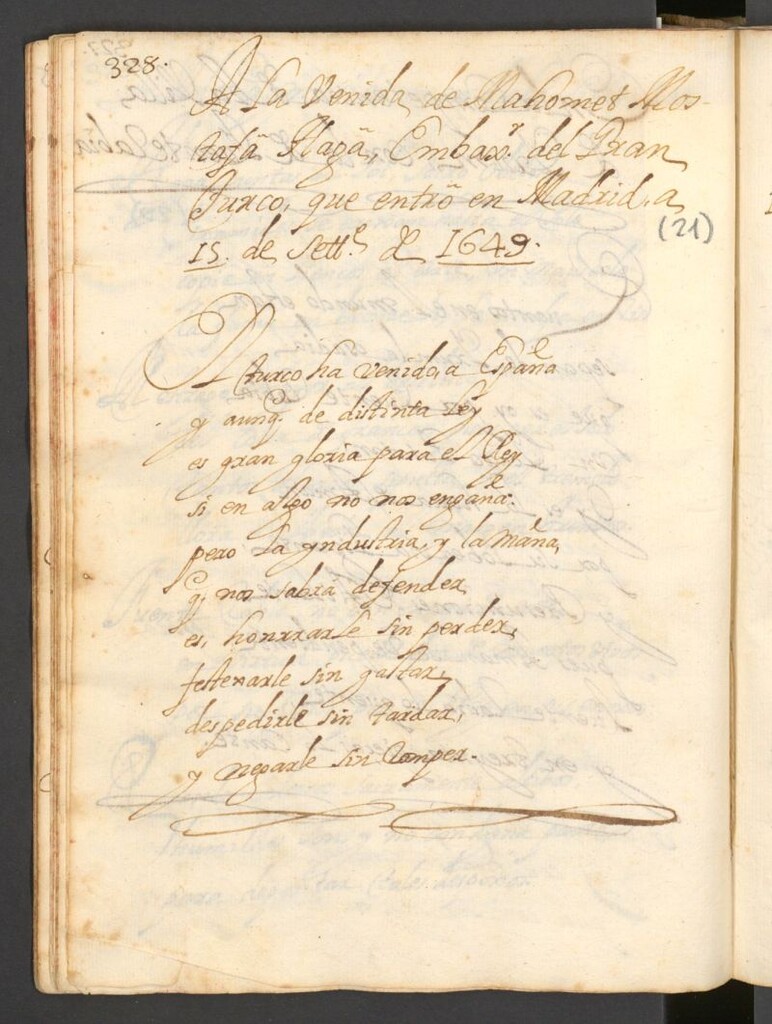 328.
A La Venida de Mahomet Mos-
tafâ Plagâ, Embaxr. del Gran
Turco, que entrô en Madrid, a
15. de Sette. de 1649.
(21)
El turco ha venido, a España
y aunq. de distinta Ley
es gran gloria para el Rey
si en algo no nos engaña.
pero La yndustria, y la maña,
q. nos sabrà defender,
es, honrrarle sin perder,
festexarle sin gastar,
despedirle sin tardar,
y negarle sin Romper.